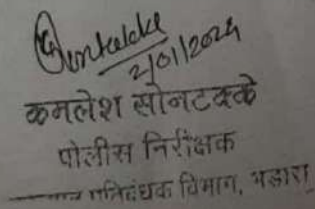 2/01/2024
कमलेश सोनटक्के
पोलीस निरीक्षक
प्रतिबंधक विभाग, भंडारा